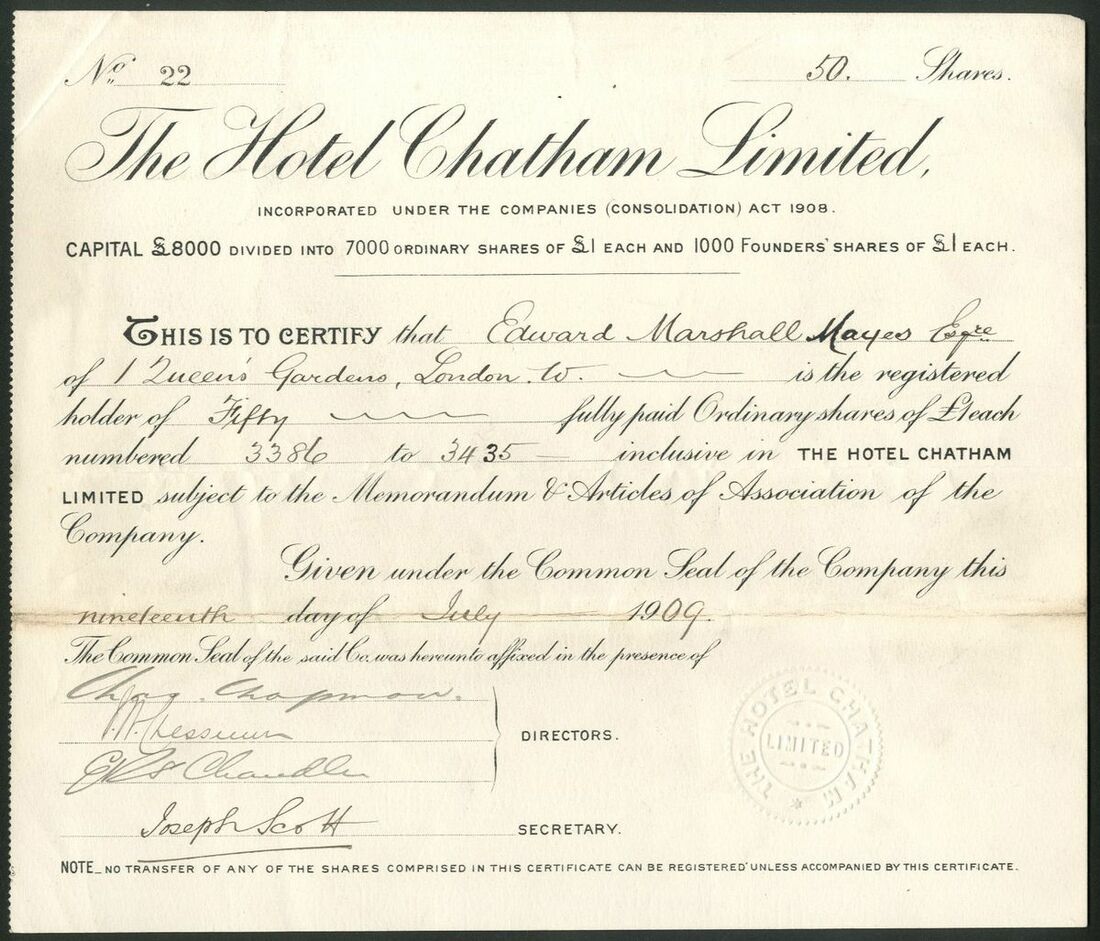 No. 22 50. Shares.
The Hotel Chatham Limited,
INCORPORATED UNDER THE COMPANIES (CONSOLIDATION) ACT 1908.
CAPITAL £8000 DIVIDED INTO 7000 ORDINARY SHARES OF £1 EACH AND 1000 FOUNDERS' SHARES OF £1 EACH.
THIS IS TO CERTIFY that Edward Marshall Mayes Esqre
of 1 Queen's Gardens, London. W. is the registered
holder of Fifty fully paid Ordinary shares of £1 each
numbered 3386 to 3435 inclusive in THE HOTEL CHATHAM
LIMITED subject to the Memorandum & Articles of Association of the
Company.
Given under the Common Seal of the Company this
nineteenth day of July 1909.
The Common Seal of the said Co. was hereunto affixed in the presence of
Chas. Chapman.
Chandler
DIRECTORS.
Joseph Scott SECRETARY.
THE HOTEL CHA-HAM LIMITED
NOTE_NO TRANSFER OF ANY OF THE SHARES COMPRISED IN THIS CERTIFICATE CAN BE REGISTERED UNLESS ACCOMPANIED BY THIS CERTIFICATE.